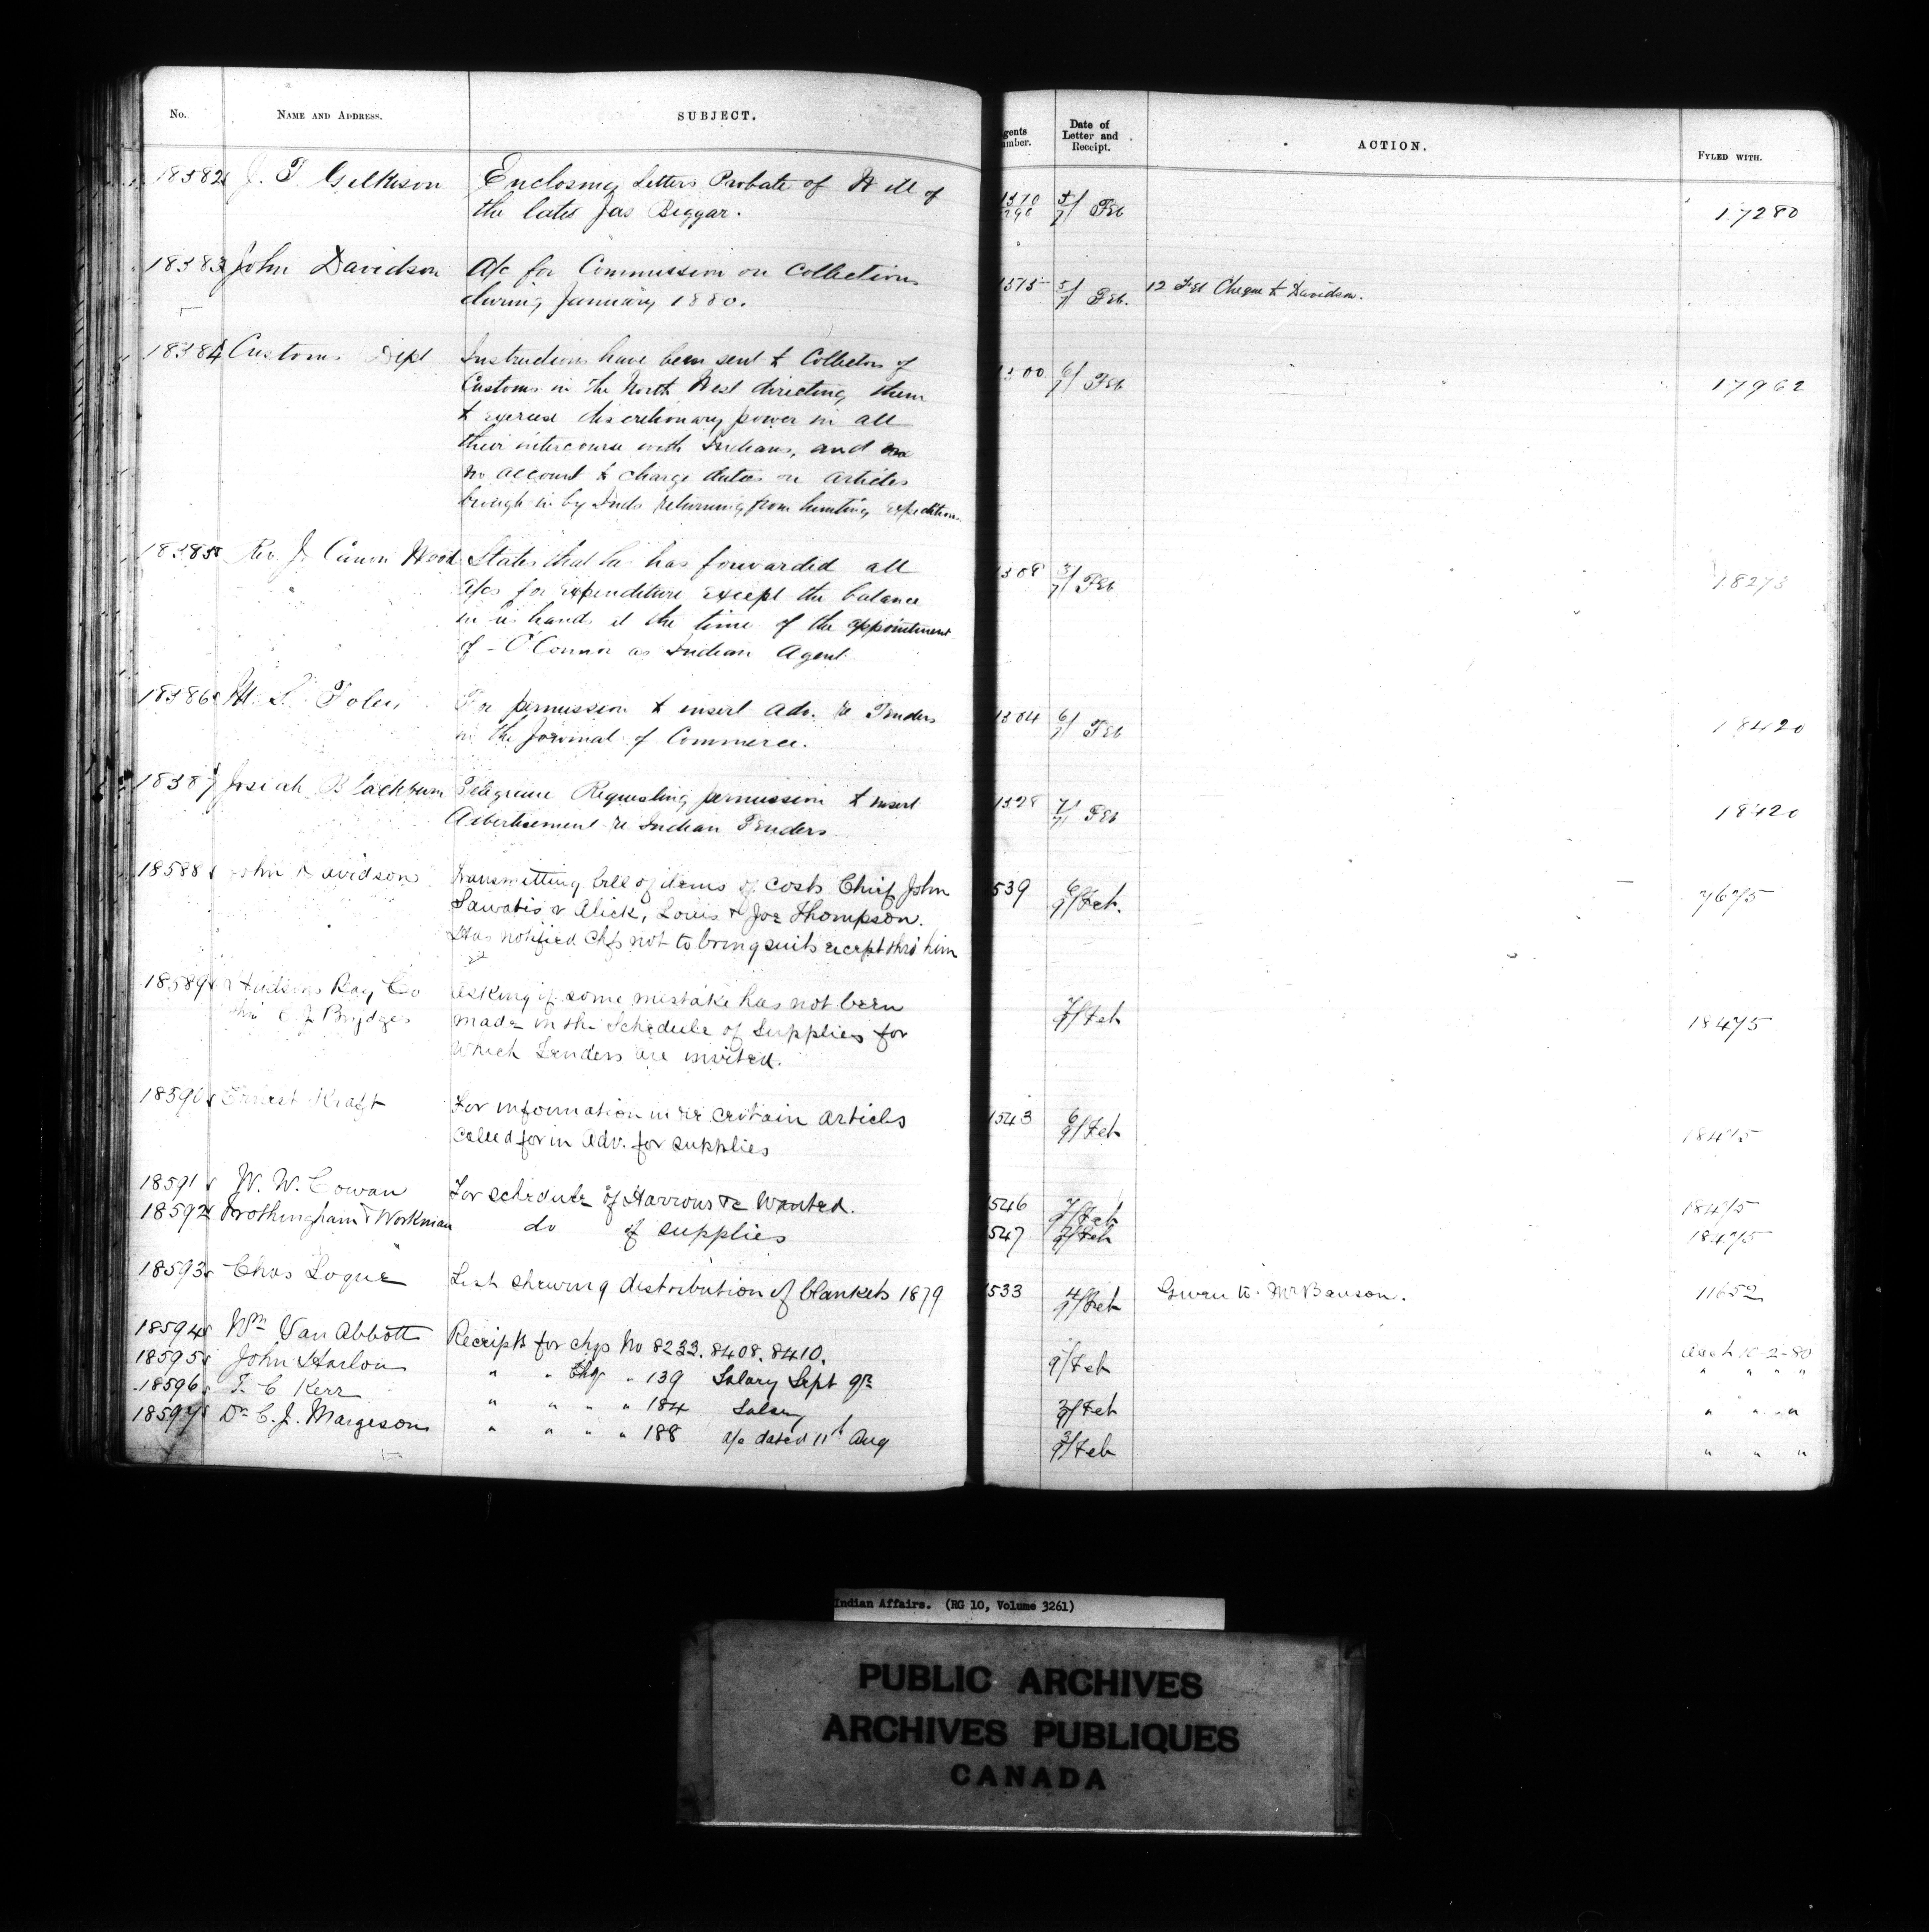 No. NAME AND ADDRESS. SUBJECT. Agents Number. Date of Letter and Receipt. ACTION. FYLED WITH.
18582 J. T. Gilkison Enclosing Letters Probate of Will of 5/7 Feb 17280
the late Jas Beggar.
18583 John Davidson A/c for Commission on Collections 5/7 Feb. 12 Feb Cheque to Davidson.
during January 1880.
18584 Customs Dept Instructions have been sent to Collectors of 6/7 Feb 17962
Customs in the North West directing them
to exercise discretionary power in all
their intercourse with Indians, and on
no account to charge duties on articles
brough in by Inds returning from hunting expeditions.
18585 Rev J. Canon Wood States that he has forwarded all 3/7 Feb 18273
a/cs for expenditure except the balance
in his hands at the time of the appointment
of - O'Connor as Indian Agent.
18586 M. S. Foley For permission to insert Adv. re Tenders 6/7 Feb 18420
in the Journal of Commerce.
18587 Josiah Blackburn Telegram Requesting permission to insert 1528 7/7 Feb 18420
Advertisement re Indian Tenders
18588 John Davidson Transmitting bill of items of costs Chief John 539 6/9 Feb.
Sawatis & Alick, Louis & Joe Thompson.
Has notified Chfs not to bring suits except thro' him
18589 Hudsons Bay Co Asking if some mistake has not been 7/9 Feb 18475
thro' C J Brydges made in the Schedule of Supplies for
which Tenders are invited.
18590 Ernest Kraft For information in re certain articles 1543 6/9 Feb 18475
called for in Adv. for supplies
18591 W. W. Cowan For schedule of Harrows &c Wanted. 546 7/9 Feb 18475
18592 Frothingham & Workman do of supplies 547 7/9 Feb 18475
18593 Chas Logue List shewing distribution of blankets 1879 533 4/9 Feb Given to Mr Banson. 11652
18594 Wm Van Abbott Receipts for chqs No 8233. 8408. 8410. 9/Feb 10-2-80
18595 John Harlow " " Chq " 139 Salary Sept qr " " "
18596 T. C. Kerr " " " " 184 Salary 2/9 Feb " " "
18597 Dr C. J. Margeson " " " " 188 a/c dated 11th Aug 3/9 Feb " " "
Indian Affairs. (RG 10, Volume 3261)
PUBLIC ARCHIVES
ARCHIVES PUBLIQUES
CANADA